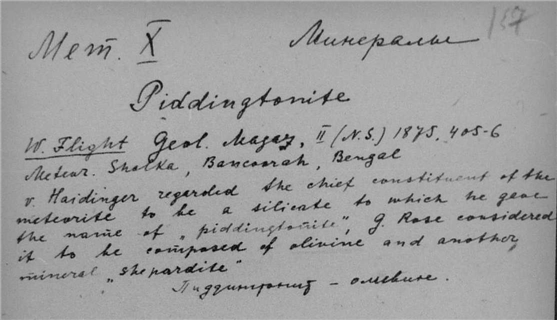 157
Мет. X Минералы
Piddingtonite
W. Flight Geol. Magaz, II (N.S.) 1875, 405-6
Meteor. Shalka, Bancoorah, Bengal
v. Haidinger regarded the chief constituent of the
meteorite to be a silicate to which he gave
the name of „piddingtonite", G. Rose considered
it to be composed of olivine and another
mineral „shepardite"
Пиддингтонит – оливине.